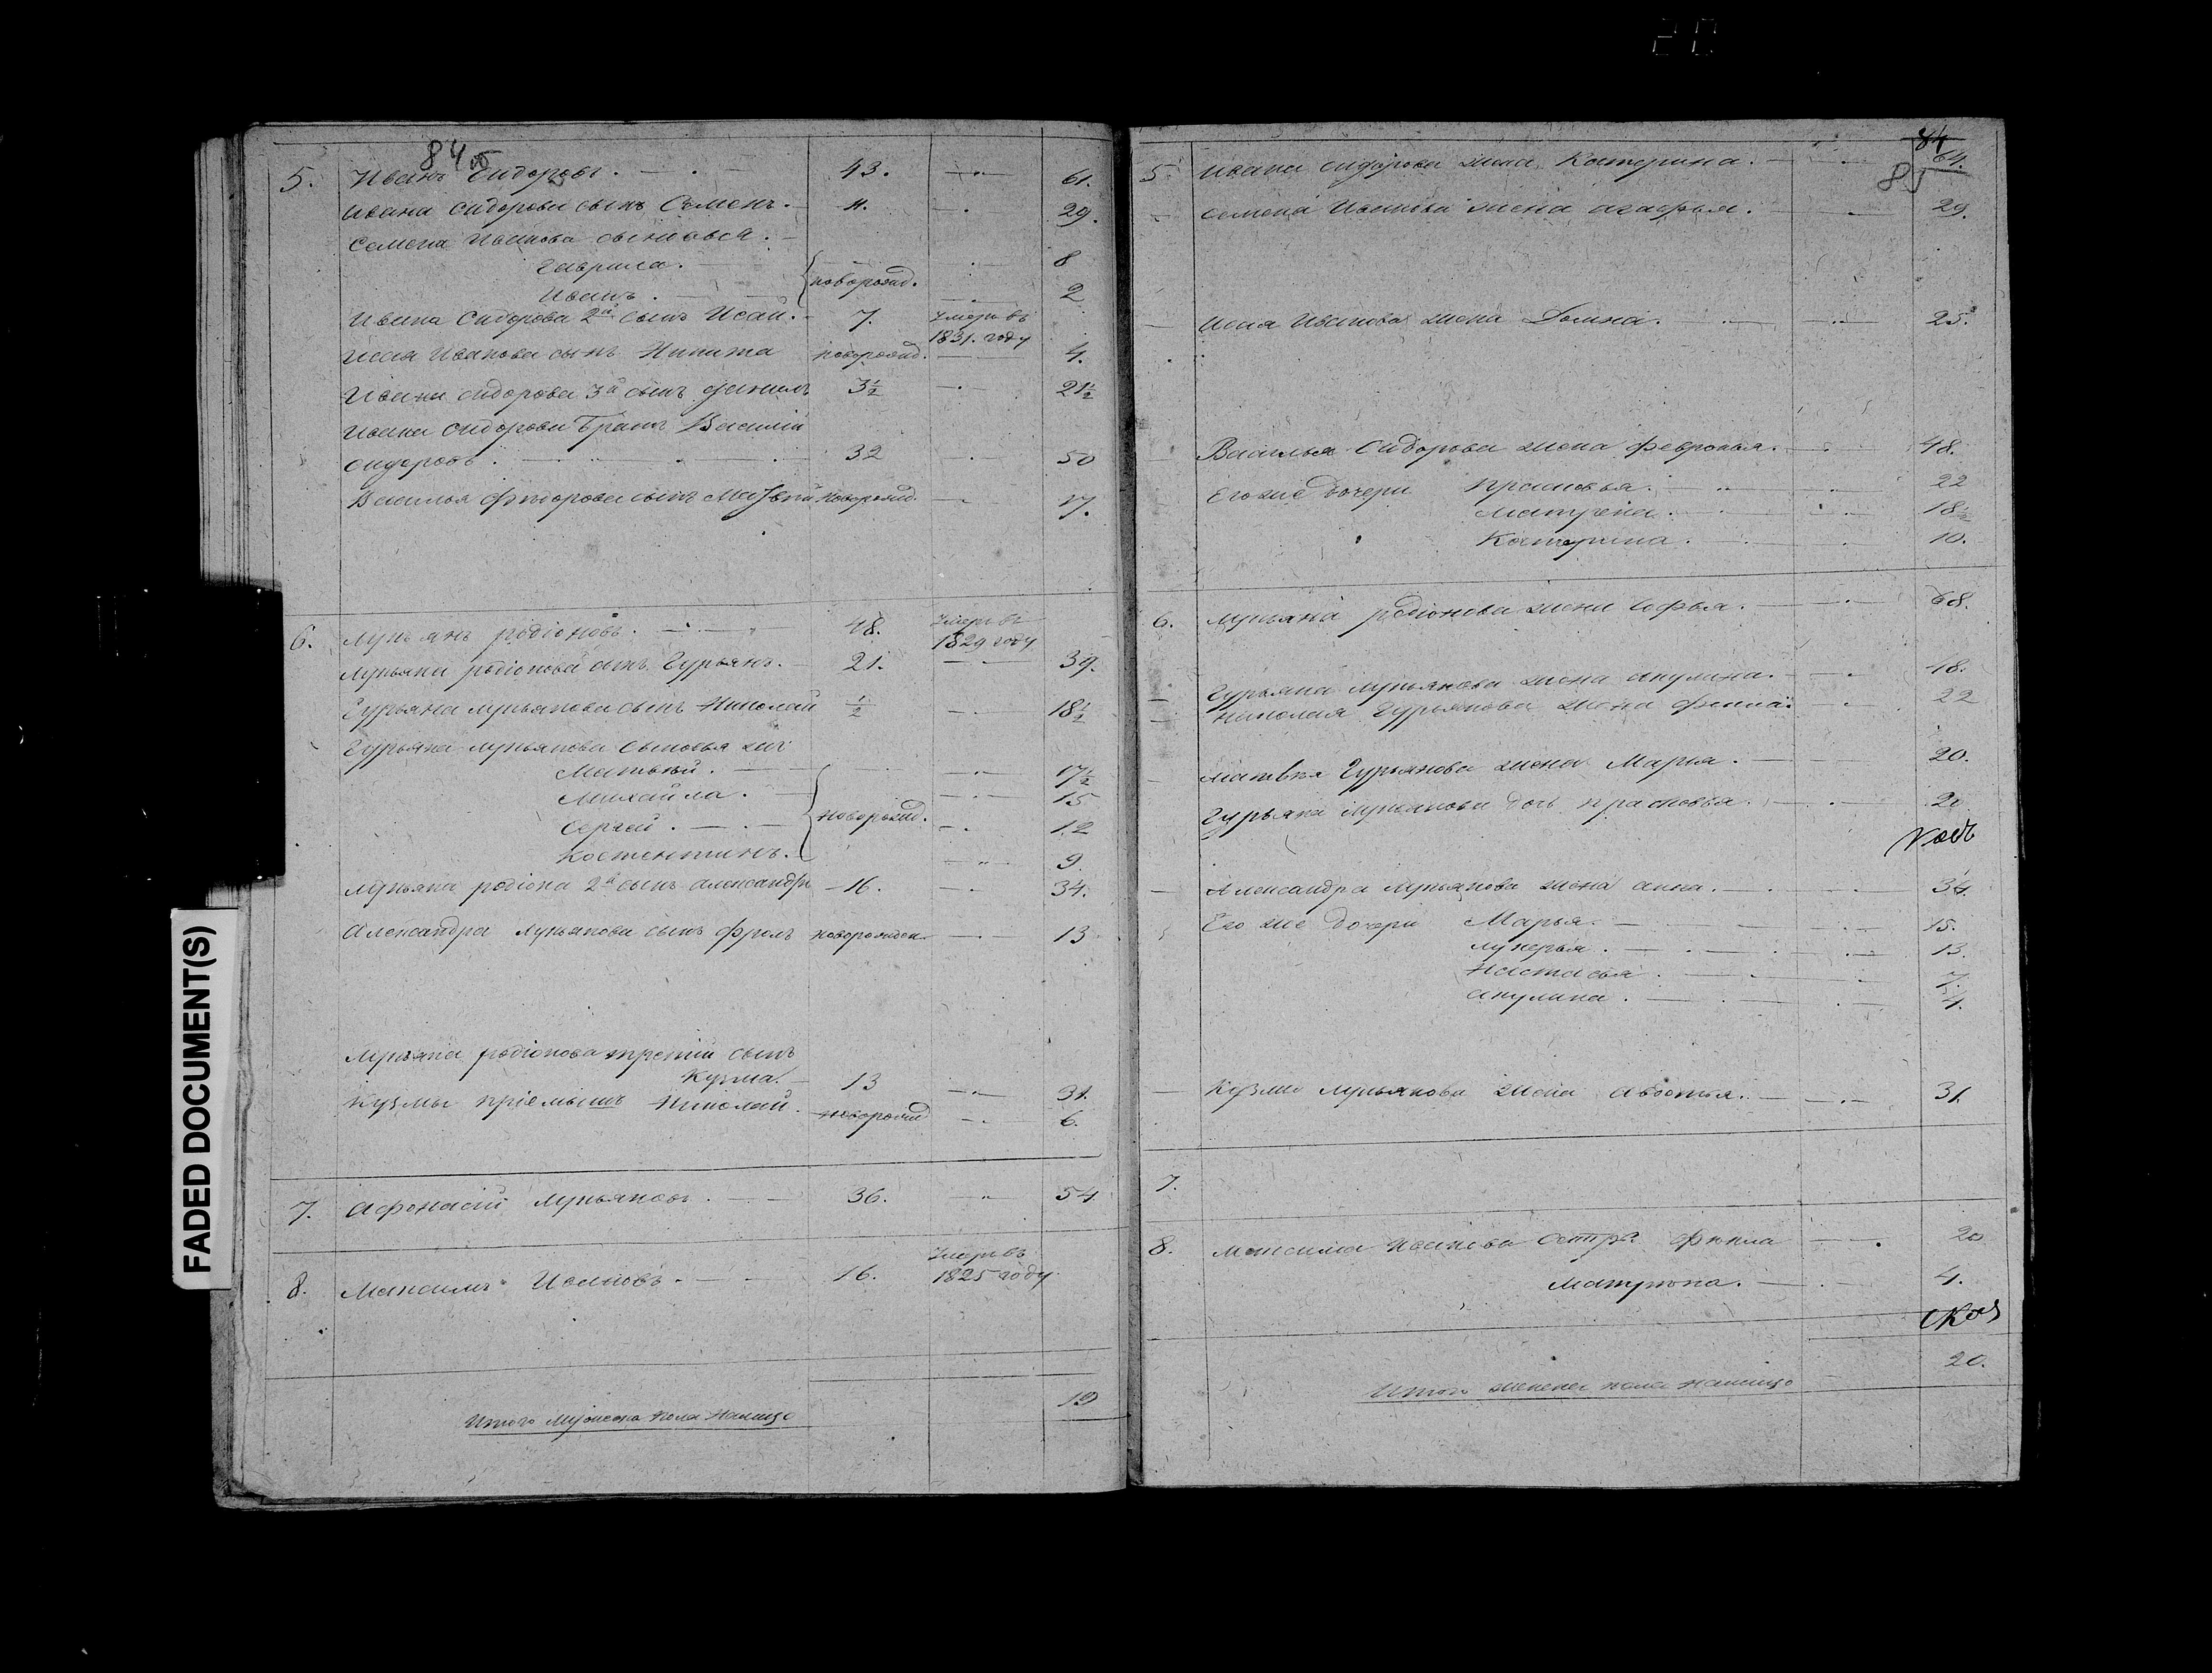 84 об
5. Иванъ Сидоровъ. 43. 61.
Ивана Сидорова сынъ Семенъ. 11. 29.
Семена Иванова сыновья.
Гаврила. 8
Иванъ. новорожд. 2
Ивана Сидорова 2й сынъ Исай. 7. Умеръ въ
1831. году
Исая Иванова сынъ Никита новорожд. 4.
Ивана Сидорова 3й сынъ Данилъ 3½ 21½
Ивана Сидорова Братъ Василий
Сидоровъ. 32 50
Василья сынъ новорожд. 17.
6. Лукьянъ родіоновъ. 48. Умеръ въ
1829 году
Лукьяна родіонова сынъ Гурьянъ. 21. 39.
Гурьяна лукьянова сынъ Николай ½ 18½
Гурьяна лукьянова Сыновья
Матвей. 17½
Михайла. 15
Сергей. новорожд. 12
Костентинъ. 9
Лукьяна родіона 2й сынъ александръ 16. 34.
Александра лукьянова сынъ фролъ новорожден. 13
Лукьяна родіонова третий сынъ
Кузма. 13 31.
Кузмы пріемышъ Николай. новорожд 6.
7. Афонасий лукьяновъ. 36. 54
8. Максимъ Ивановъ. 16. Умеръ въ
1825 году.
Итого мужеска пола налицо 19
84
85
5 Ивана Сидорова жена Катерина. 64.
Семена Иванова жена агафья. 29.
Исая Иванова жена Домна. 25.
Василья Сидорова жена февронья. 48.
Его же дочери прасковья. 22
Матрена. 18½
Катерина. 10.
6. Лукьяна родіонова жена Софья. 68.
Гурьяна лукьянова жена акулина. 48.
Николая Гурьянова жена 22
Матвея Гурьянова жена Марья. 20.
Гурьяна лукьянова дочь прасковья. 20
Александра лукьянова жена анна. 34.
Его же дочери Марья. 15.
лукерья. 13.
Настасья. 7.
акулина. 4.
Кузмы лукьянова жена авдотья. 31.
7.
8. Максима Иванова Сестра Фекла 20
Матрона. 4.
20.
Итого женска пола налицо
FADED DOCUMENT(S)